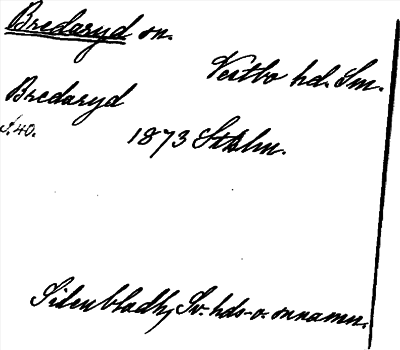 Bredaryd sn.
Vestbo hd. Sm.
Bredaryd
s. 40.
1873 Sthlm.
Sidenbladh, Sv. hds- o. snnamn.